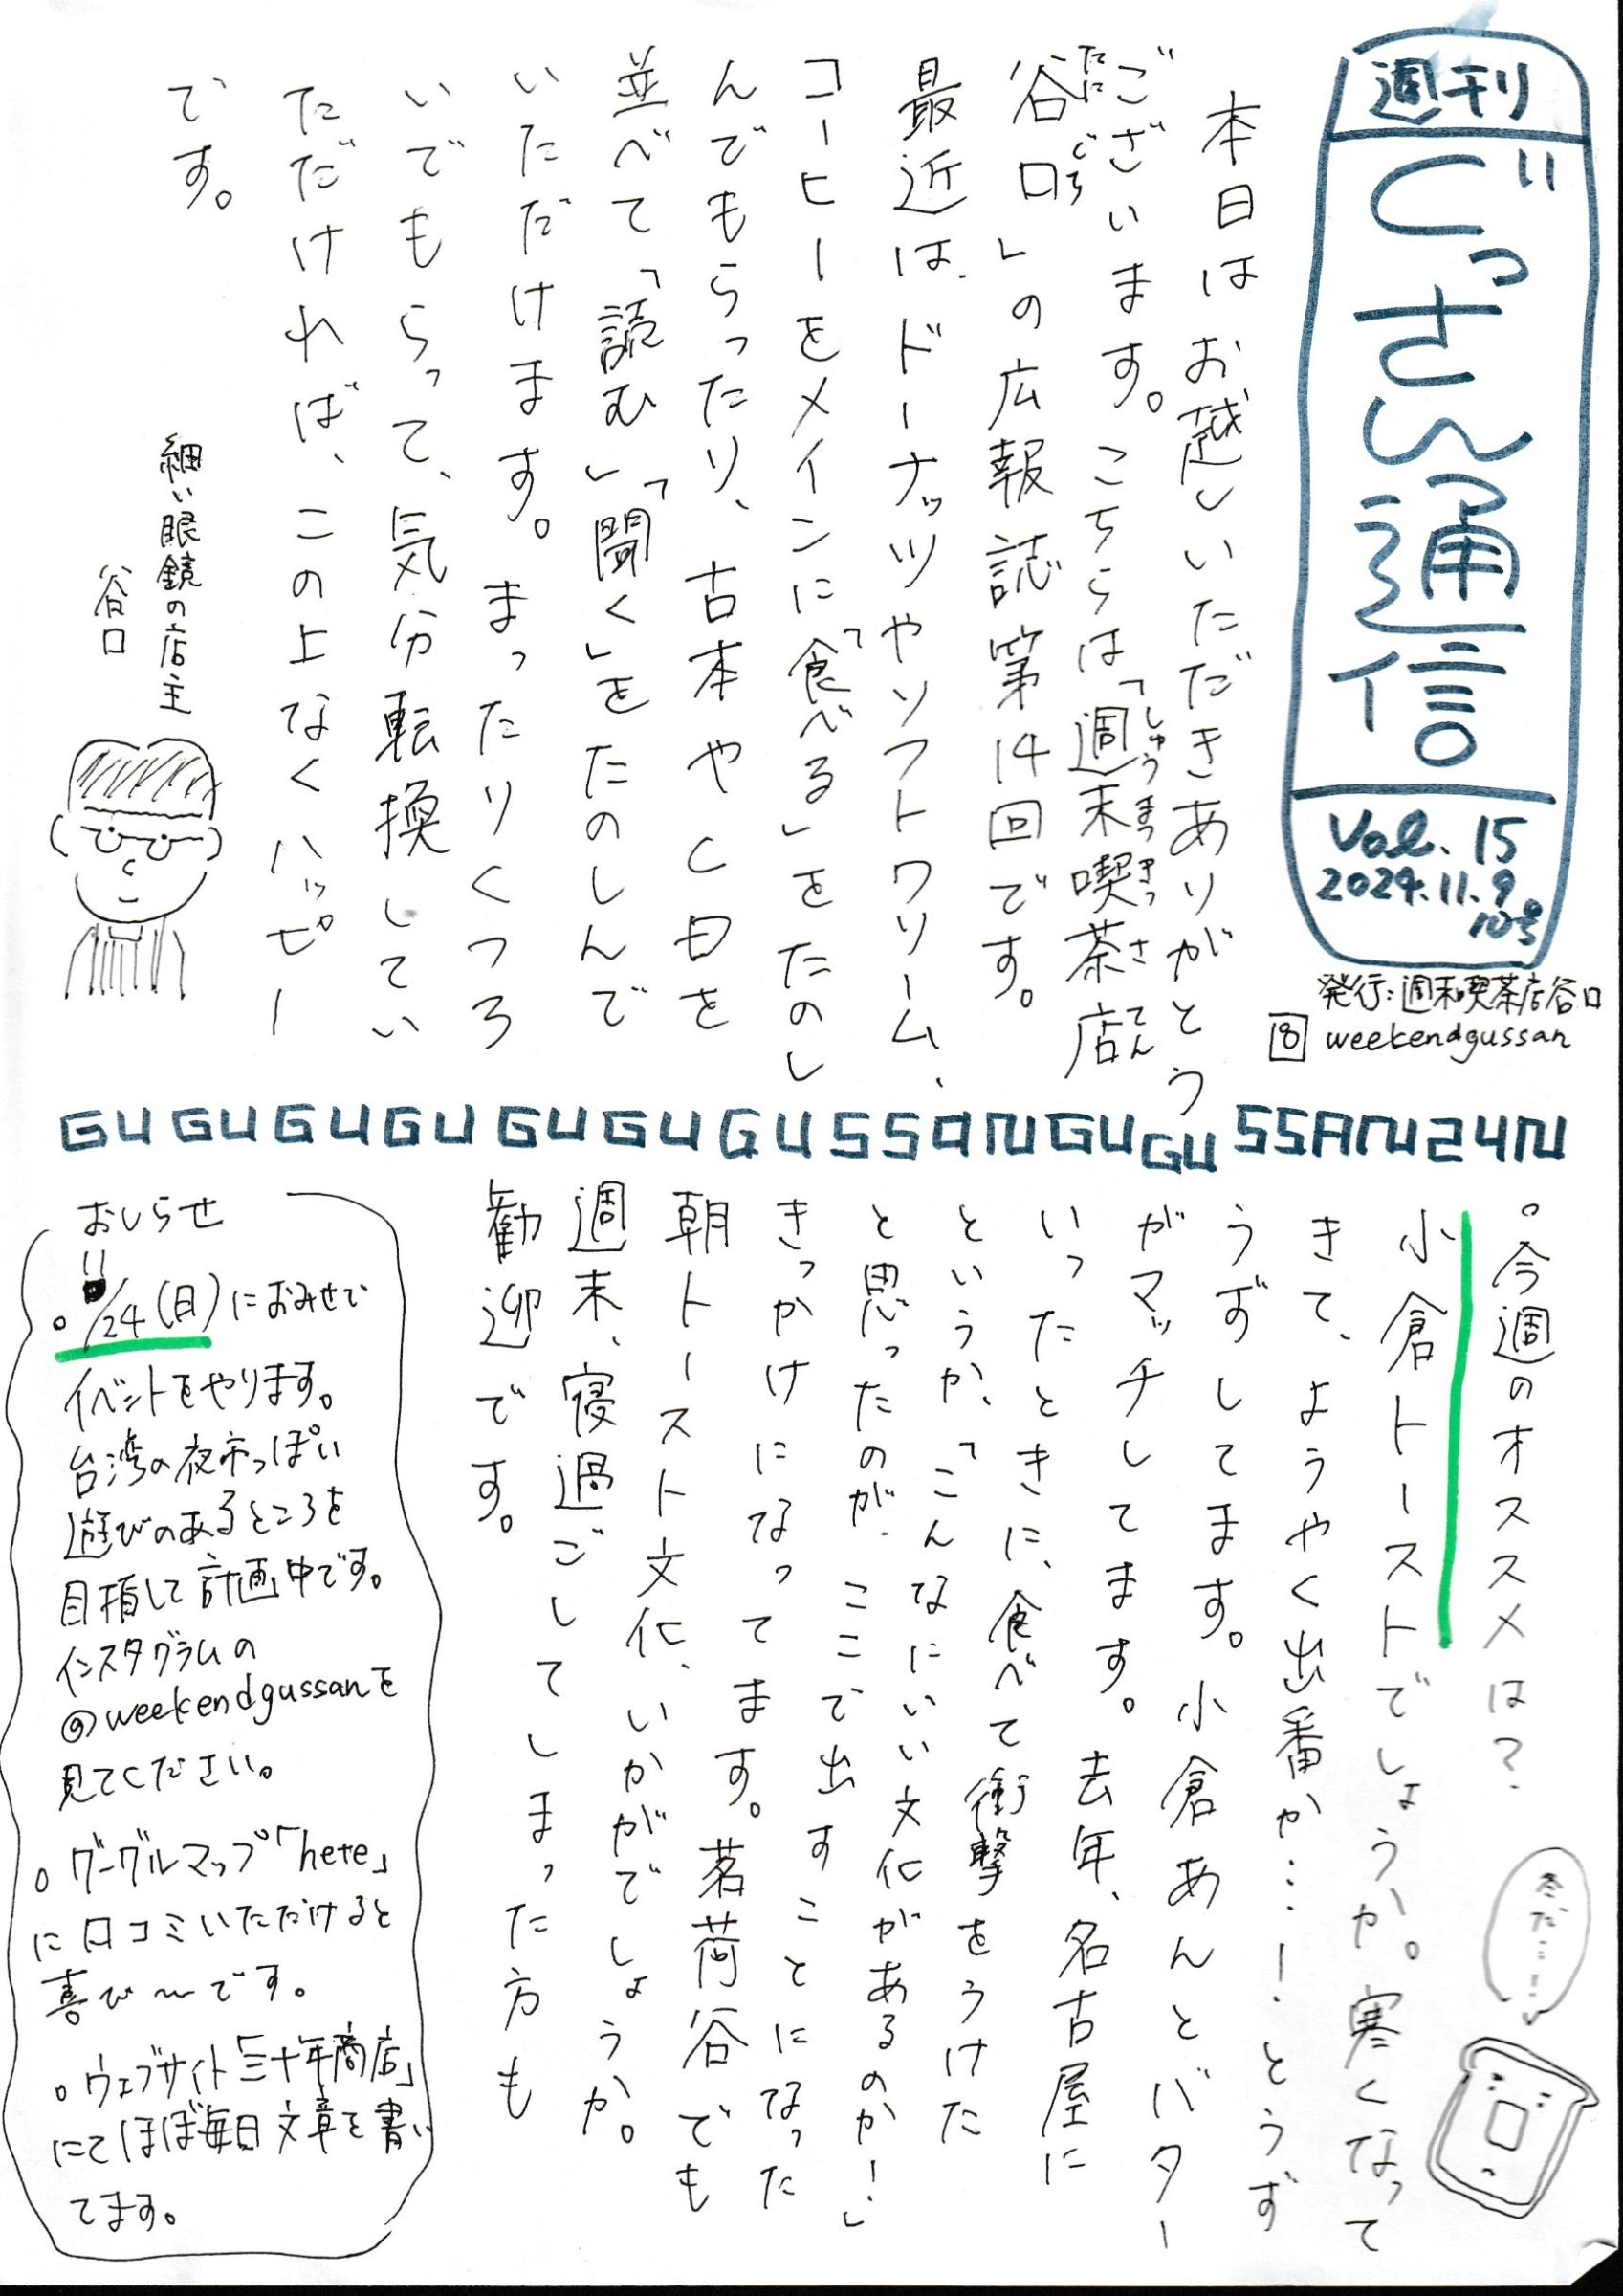 週刊
ぐっさん通信
Vol.15
2024.11.9
10号
発行:週末喫茶店谷口
weekendgussan
本日はお越しいただきありがとう
ございます。こちらは「週末喫茶店
しゅうまつきっさてん
谷口」の広報誌第14回です。
たにぐち
最近は、ドーナッツやソフトクリーム、
コーヒーをメインに「食べる」をたのし
んでもらったり、古本やCDを
並べて「読む」「聞く」をたのしんで
いただけます。まったりくつろ
いでもらって、気分転換してい
ただければ、この上なくハッピー
です。
細い眼鏡の店主
谷口
GU GU GU GU GU GU GUSSAN GU GUSSAN 24N
。今週のオススメは?
小倉トーストでしょうか。寒くなって
きて、ようやく出番か…!とうず
うずしてます。小倉あんとバター
がマッチしてます。去年、名古屋に
いったときに、食べて衝撃をうけた
というか、「こんなにいい文化があるのか!」
と思ったのが、ここで出すことになった
きっかけになってます。茗荷谷でも
朝トースト文化、いかがでしょうか。
週末、寝過ごしてしまった方も
歓迎です。
冬だ…!
おしらせ
。11/24(日)におみせで
イベントをやります。
台湾の夜市っぽい
遊びのあるところを
目指して計画中です。
インスタグラムの
@weekendgussanを
見てください。
。グーグルマップ「here」
に口コミいただけると
喜び〜です。
。ウェブサイト「三十年商店」
にてほぼ毎日文章を書い
てます。